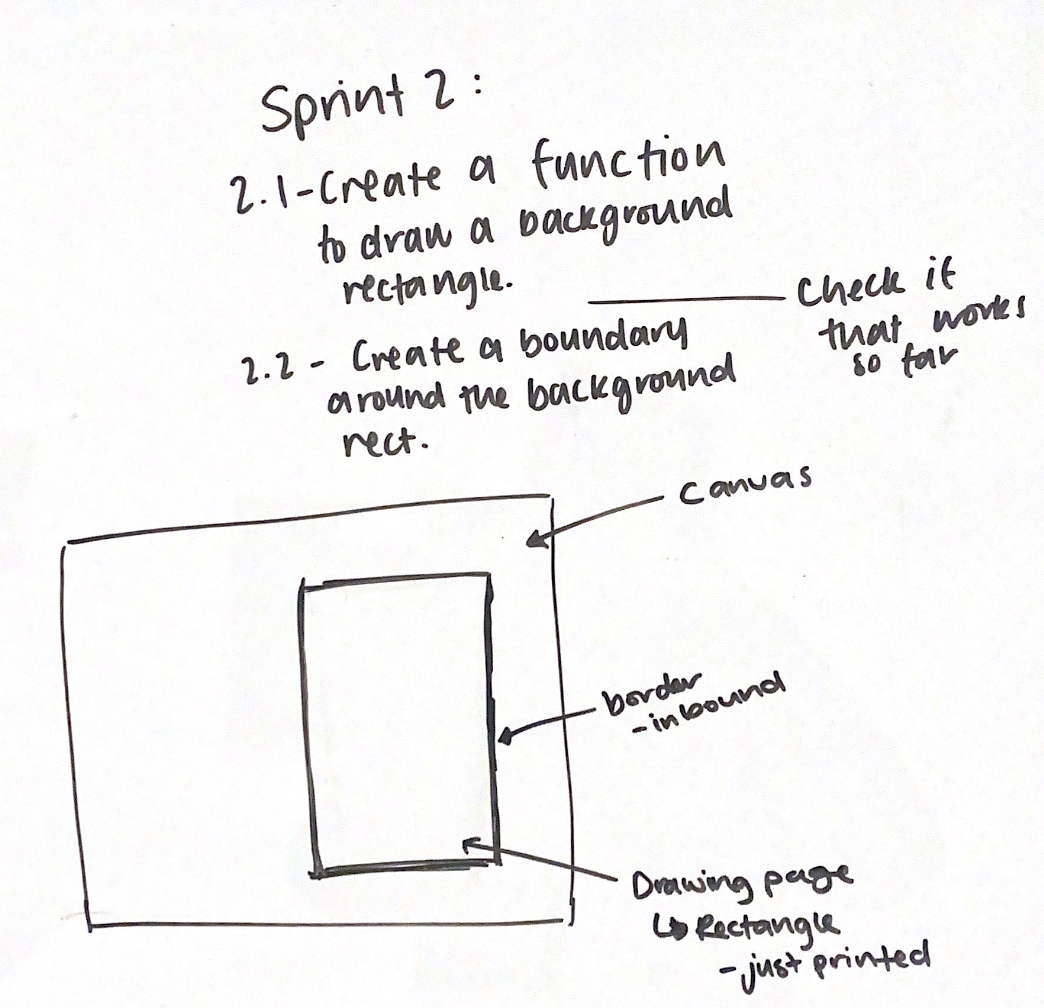 Sprint 2:
2.1-Create a function
to draw a background
rectangle.
Check if
that works
so far
2.2 - Create a boundary
around the background
rect.
Canvas
border
-inbound
Drawing page
↳ Rectangle
-just printed